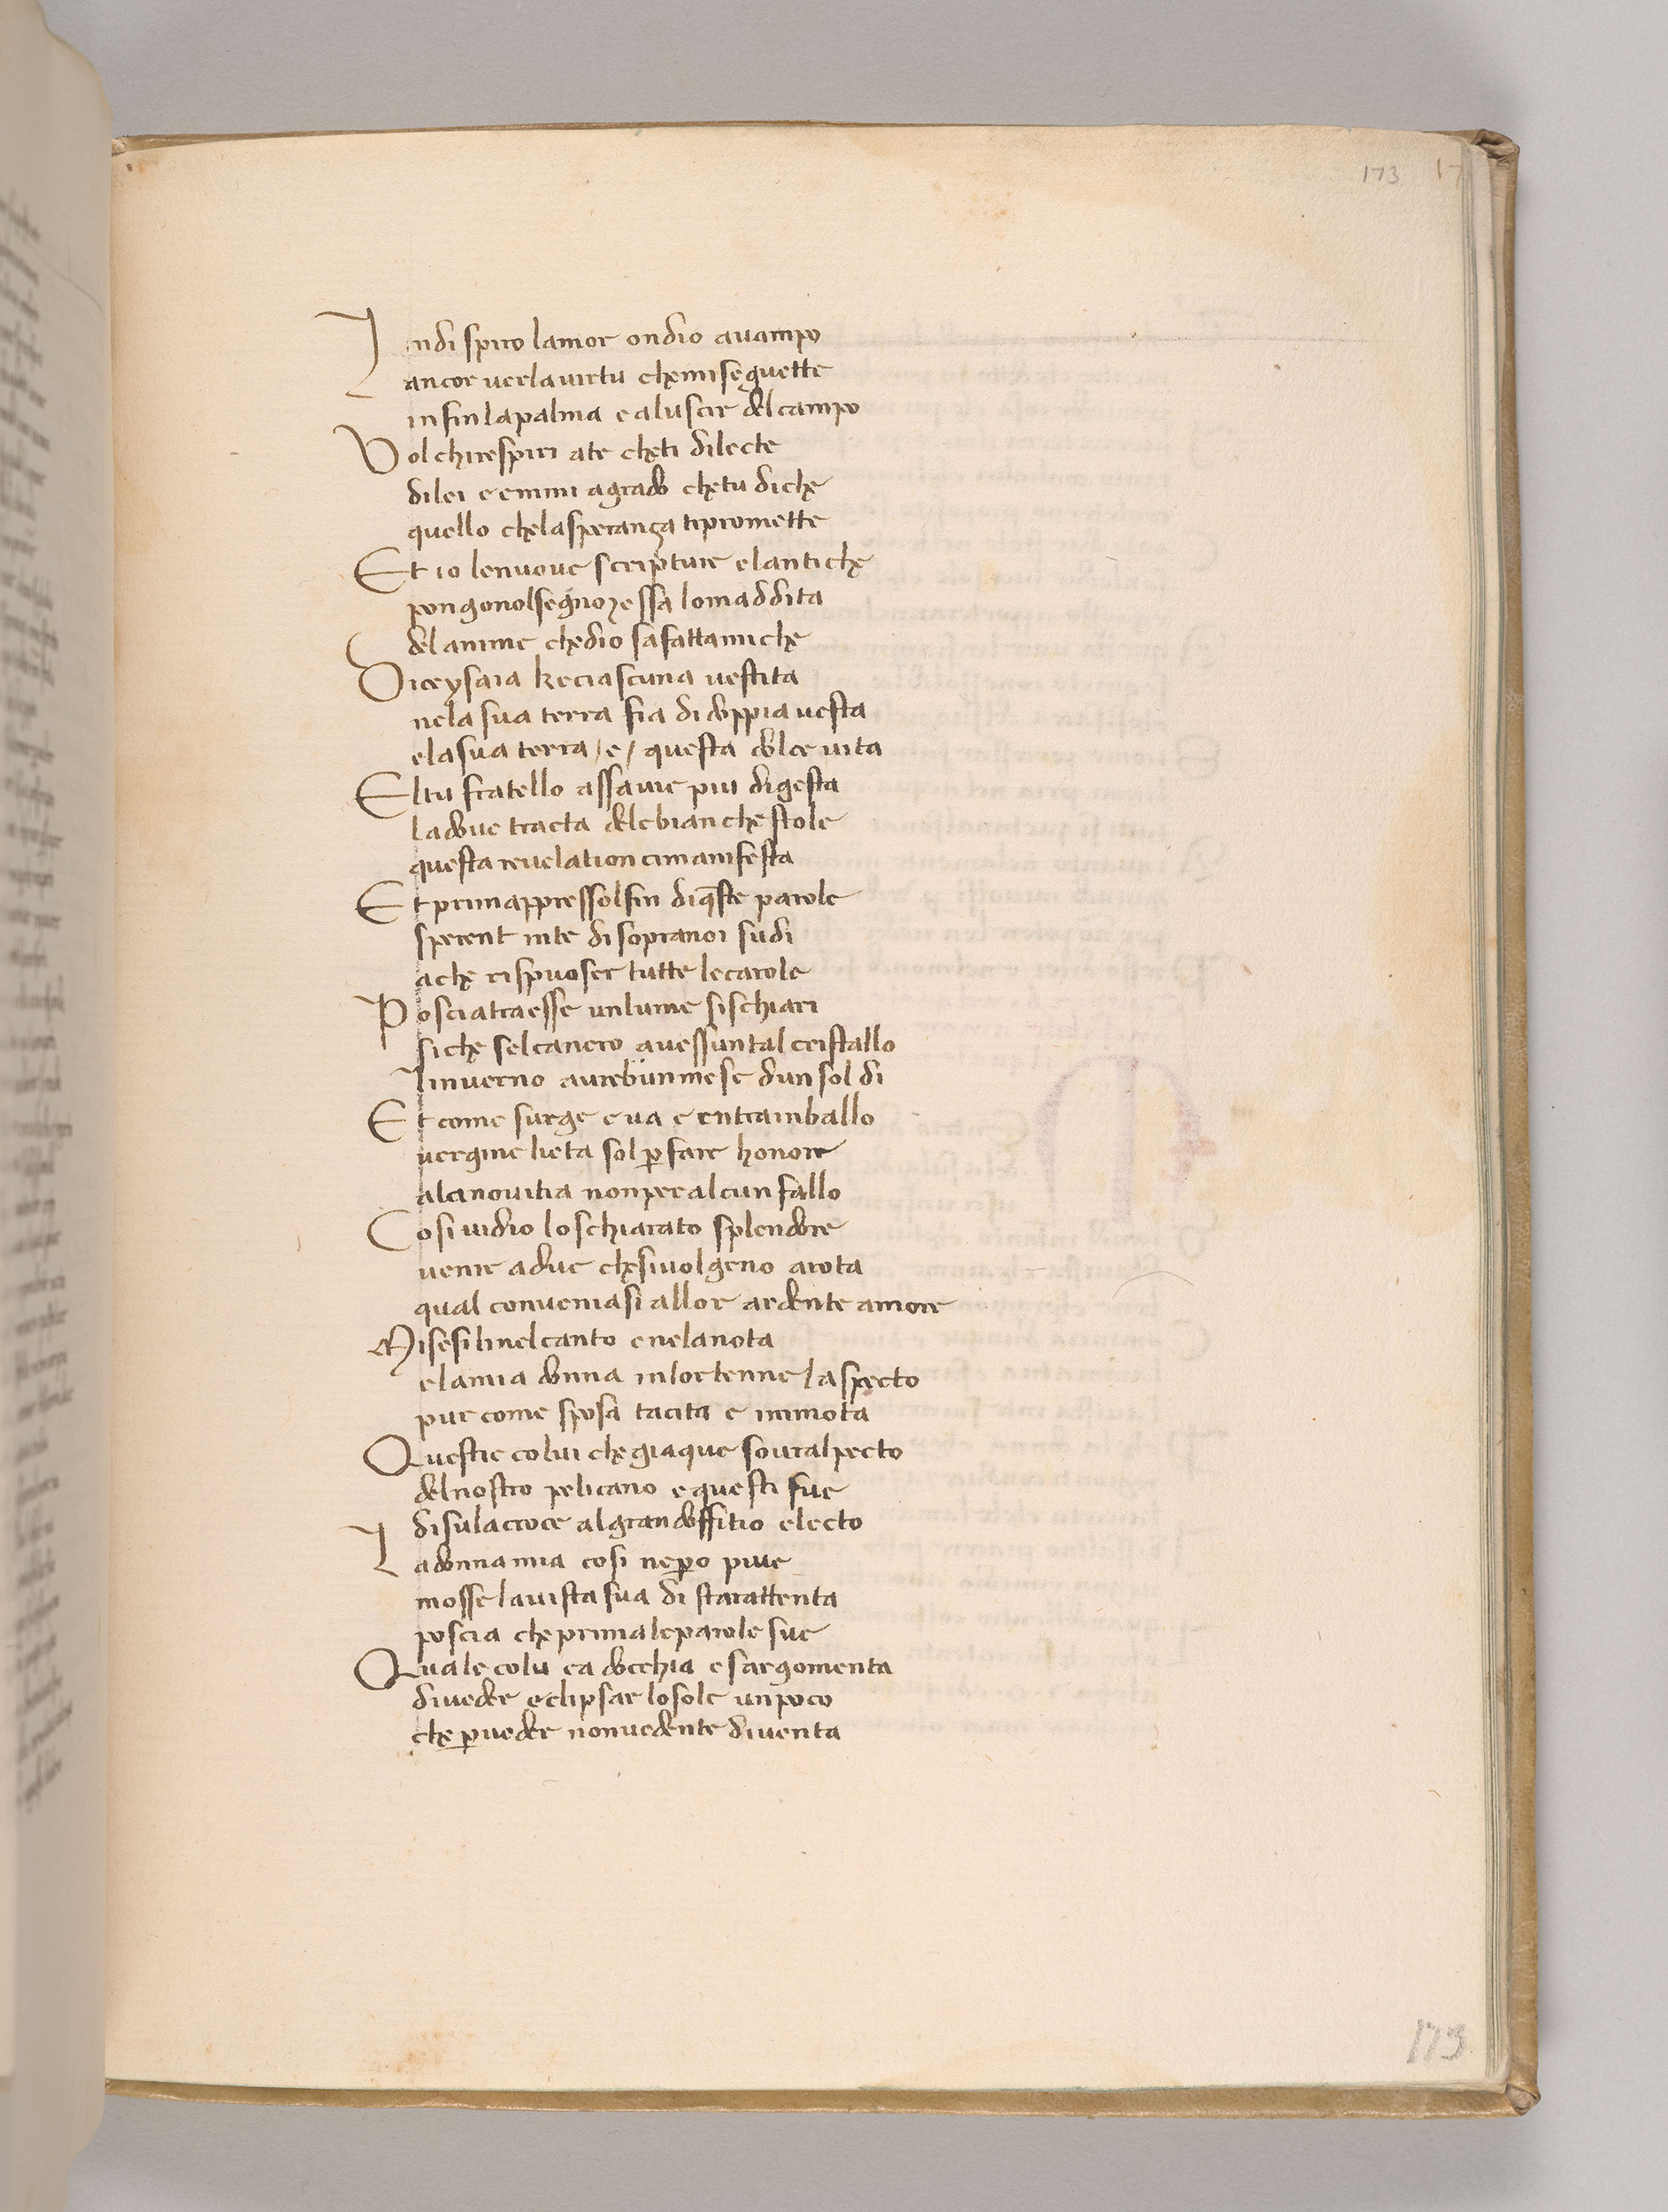 173 17
Indi spiro lamor ondio auampo
ancor uerlauirtu chemiseguette
infin lapalma e aluscir delcampo
Vol chirespiri ate cheti dilecte
dilei e emmi agrado chetu diche
quello chelasperanza tipromette
Et io lenuoue scripture elantiche
pongonolsegno essa lomaddita
delanime chedio safattamiche
Dice ysaia ke ciascuna uestita
nela sua terra fia di doppia uesta
elasua terra / e / questa dolce uita
Eltu fratello assauie piu digesta
ladoue tracta delebianche stole
questa reuelation cimanifesta
Et primappressolfin diq̄ste parole
sperent inte disopranoi sudi
ache rispuoser tutte lecarole
Posciatraesse unlume sischiari
siche selcancro auessuntal cristallo
Iinuerno aurebunmese dun sol di
Et come surge e ua e entrainballo
uergine lieta sol ꝑ fare honore
alanouitia nonper alcun fallo
Cosi uidio loschiarato splendore
uenire adue chesiuolgeno arota
qual conueniasi allor ardente amore
Misesilinelcanto enelanota
elamia donna inlortenne laspecto
pur come sposa tacita e immota
Questie colui chegiaque soural pecto
delnostro pelicano e questi fue
disulacroce algrandoffitio electo
Ladonna mia cosi neꝑo piue
mosse lauista sua di starattenta
poscia cheprimaleparole sue
Quale colu ca docchia e sargomenta
diueder eclipsar losole unpoco
che ꝑueder nonuedente diuenta
173